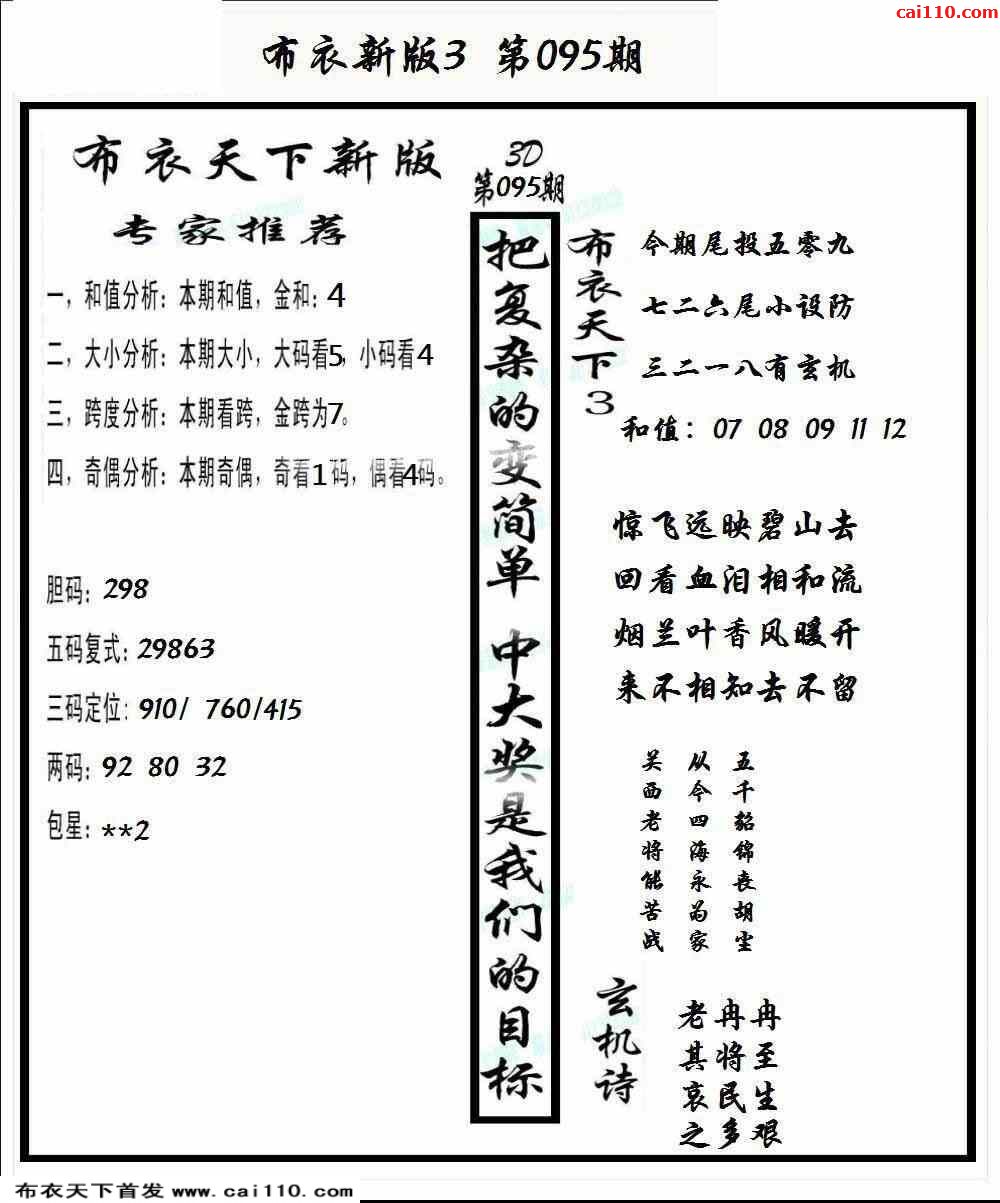 cai110.com
布衣新版3 第095期
布衣天下新版
专家推荐
一，和值分析：本期和值，金和：4
二，大小分析：本期大小，大码看5，小码看4
三，跨度分析：本期看跨，金跨为7。
四，奇偶分析：本期奇偶，奇看1码，偶看4码。
胆码：298
五码复式：29863
三码定位：910/ 760/415
两码：92 80 32
包星：**2
3D
第095期
把复杂的变简单 中大奖是我们的目标
布衣天下3
今期尾投五零九
七二六尾小设防
三二一八有玄机
和值：07 08 09 11 12
惊飞远映碧山去
回看血泪相和流
烟兰叶香风暖开
来不相知去不留
五千貂锦丧胡尘
从今四海永为家
关西老将能苦战
玄机诗
老冉冉
其将至
哀民生
之多艰
布衣天下首发 www.cai110.com